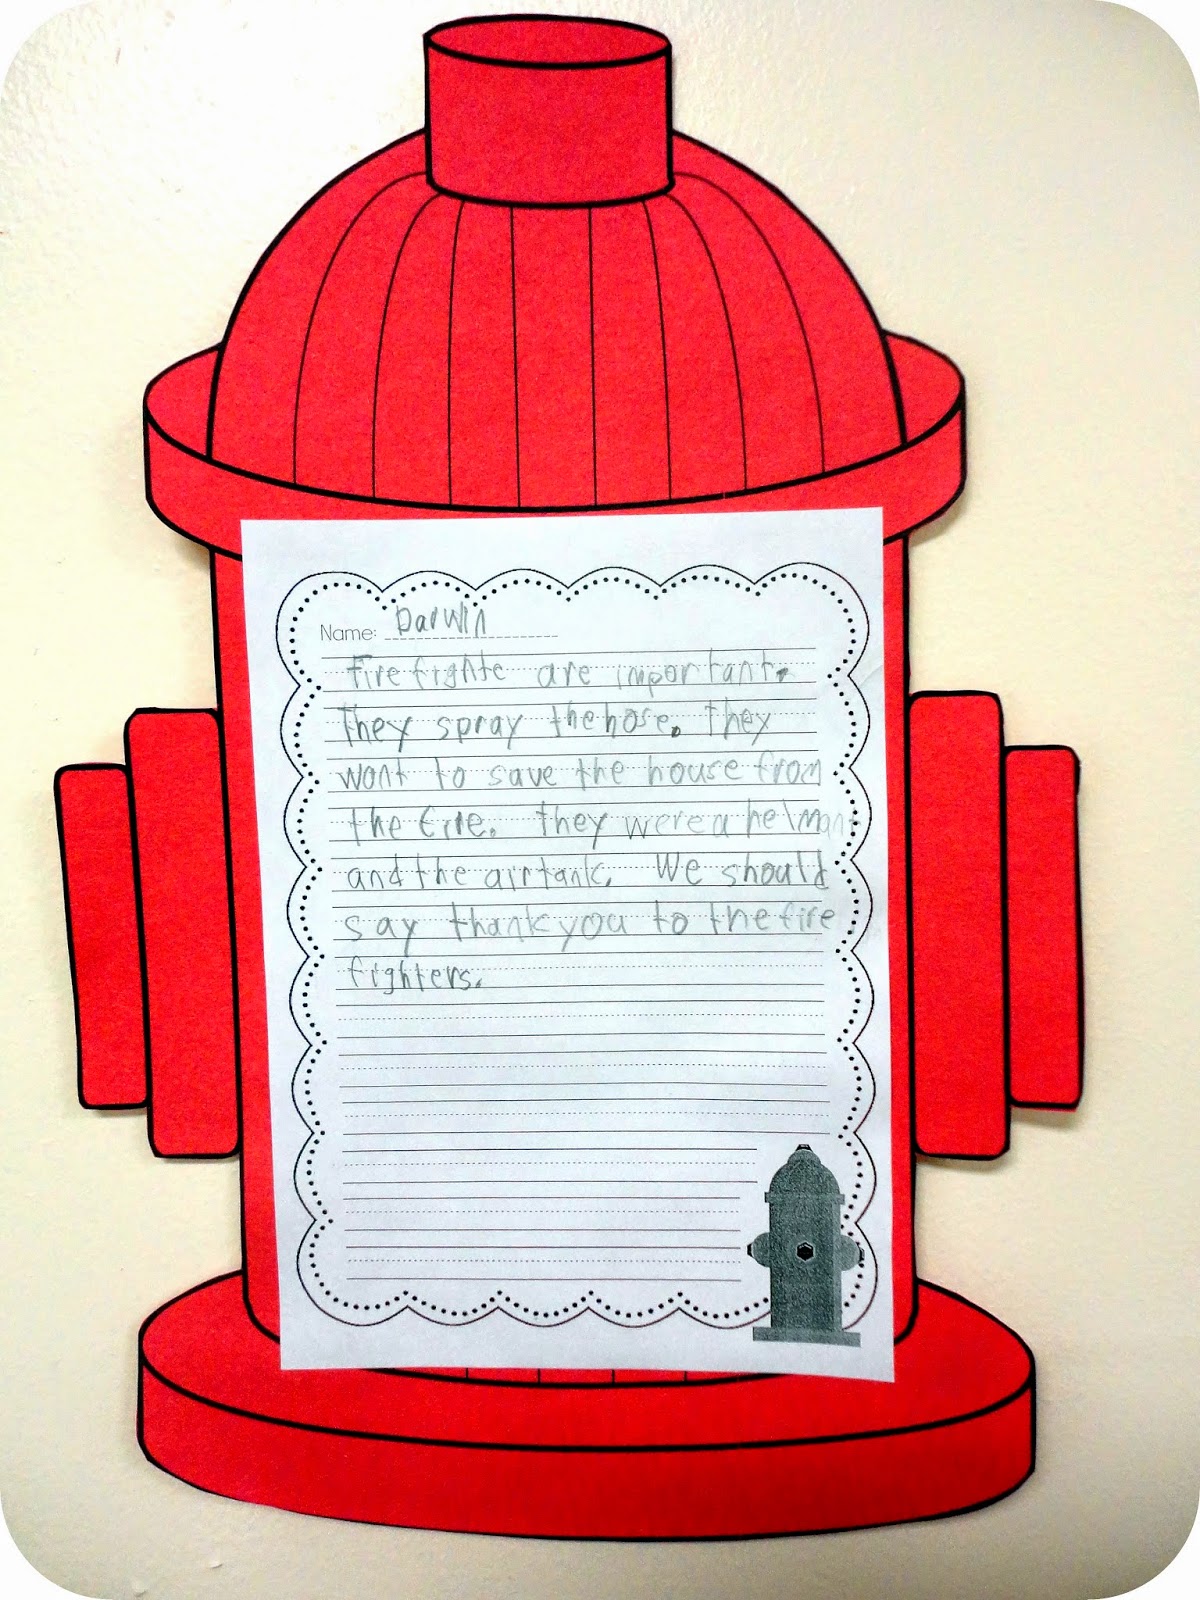 Name: Darwin
fire fighte are important.
They spray the hose. They
want to save the house from
the fire. They were a helmant
and the air tank. We should
say thank you to the fire
fighters.